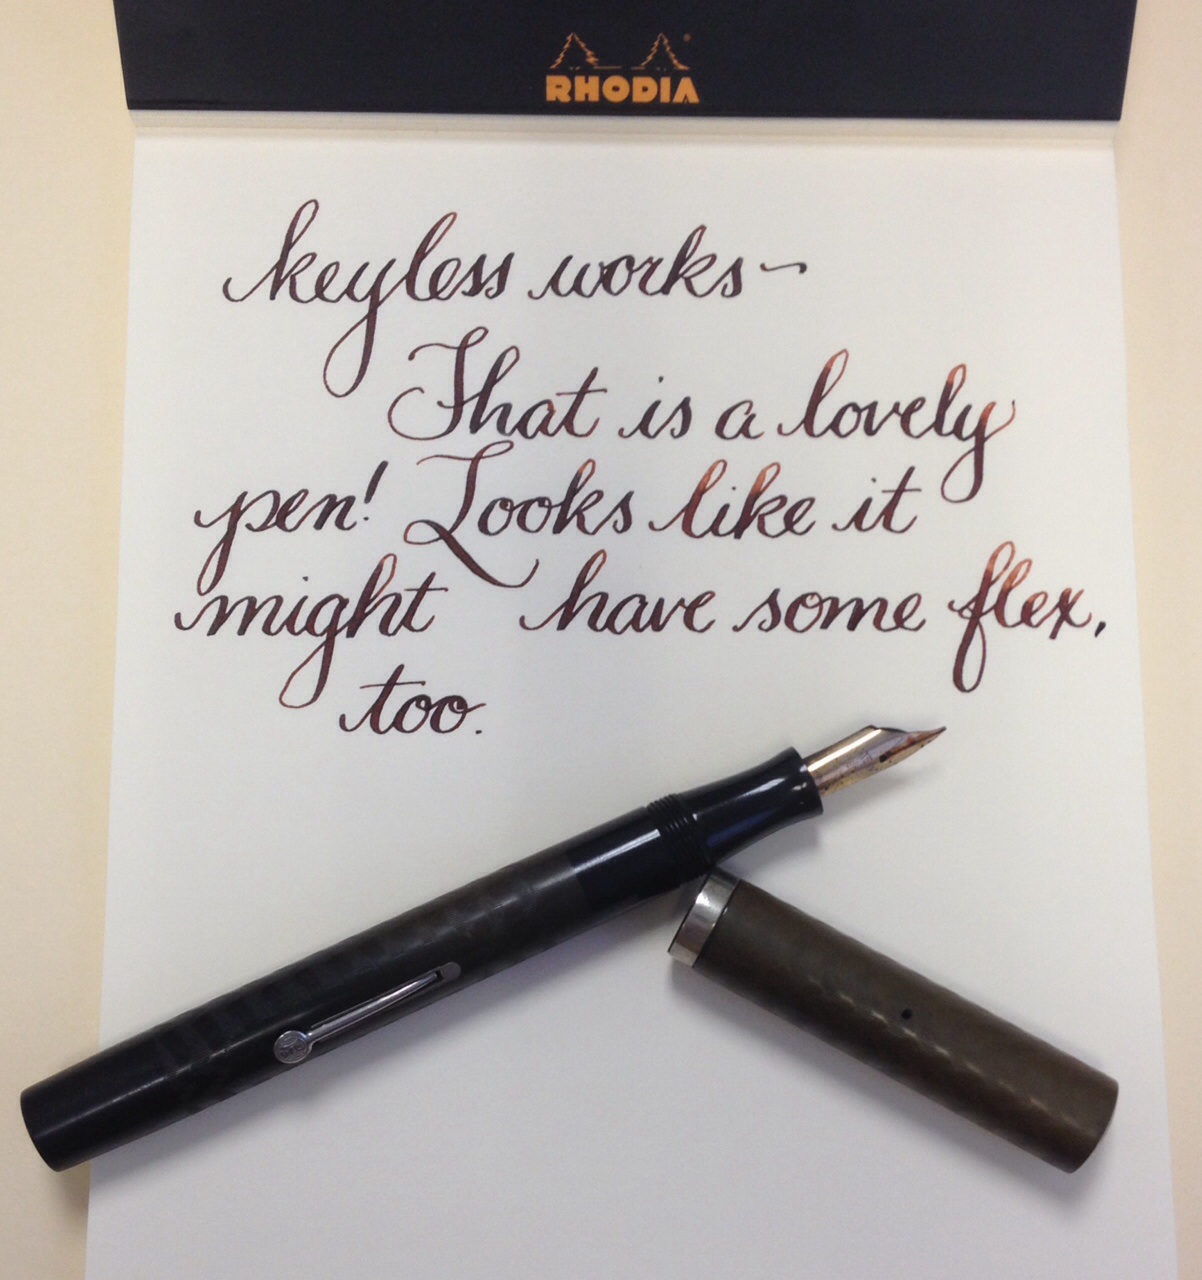 RHODIA
keyless works~
That is a lovely
pen! Looks like it
might have some flex,
too.